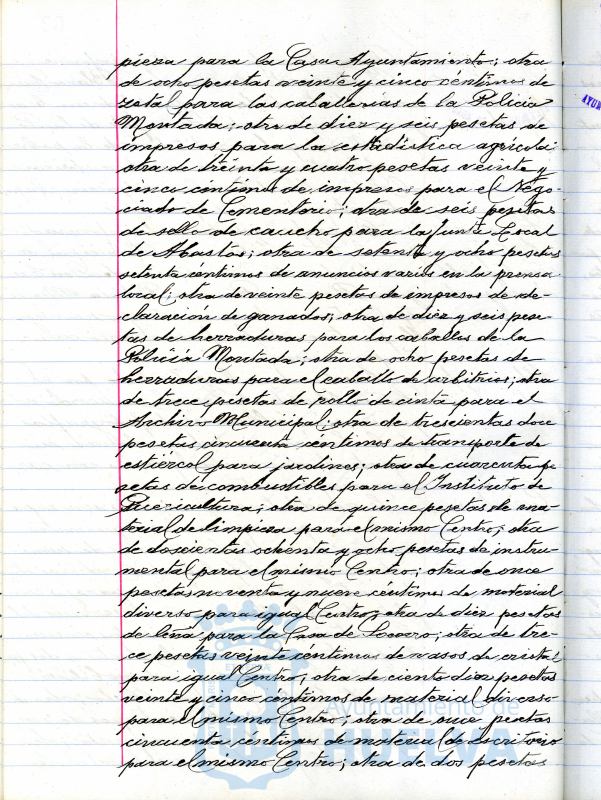 pieza para la Casa Ayuntamiento; otra
de ocho pesetas veinte y cinco céntimos de
zotal para las caballerías de la Policía
Montada; otra de diez y seis pesetas de
impresos para la estadística agrícola;
otra de treinta y cuatro pesetas veinte y
cinco centimos de impresos para el Nego-
ciado de Cementerio; otra de seis pesetas
de sello de caucho para la Junta Local
de Abastos; otra de setenta y ocho pesetas
setenta céntimos de anuncios varios en la prensa
local; otra de veinte pesetas de impresos de de-
claración de ganados; otra de diez y seis pese-
tas de herraduras para los caballos de la
Policía Montada; otra de ocho pesetas de
herraduras para el caballo de arbitrios; otra
de trece pesetas de rollo de cinta para el
Archivo Municipal; otra de trescientas doce
pesetas cincuenta céntimos de transporte de
estiércol para jardines; otra de cuarenta pe
setas de combustibles para el Instituto de
Puericultura; otra de quince pesetas de ma-
terial de limpieza para el mismo Centro; otra
de doscientas ochenta y ocho pesetas de instru-
mental para el mismo Centro; otra de once
pesetas noventa y nueve céntimos de material
diverso para igual Centro; otra de diez pesetas
de leña para la Casa de Socorro; otra de tre-
ce pesetas veinte céntimos de vasos de cristal
para igual Centro; otra de ciento diez pesetas
veinte y cinco céntimos de material diverso
para el mismo Centro; otra de once pesetas
cincuenta céntimos de material de escritorio
para el mismo Centro; otra de dos pesetas
AYUN
Ayuntamiento de
HUELVA